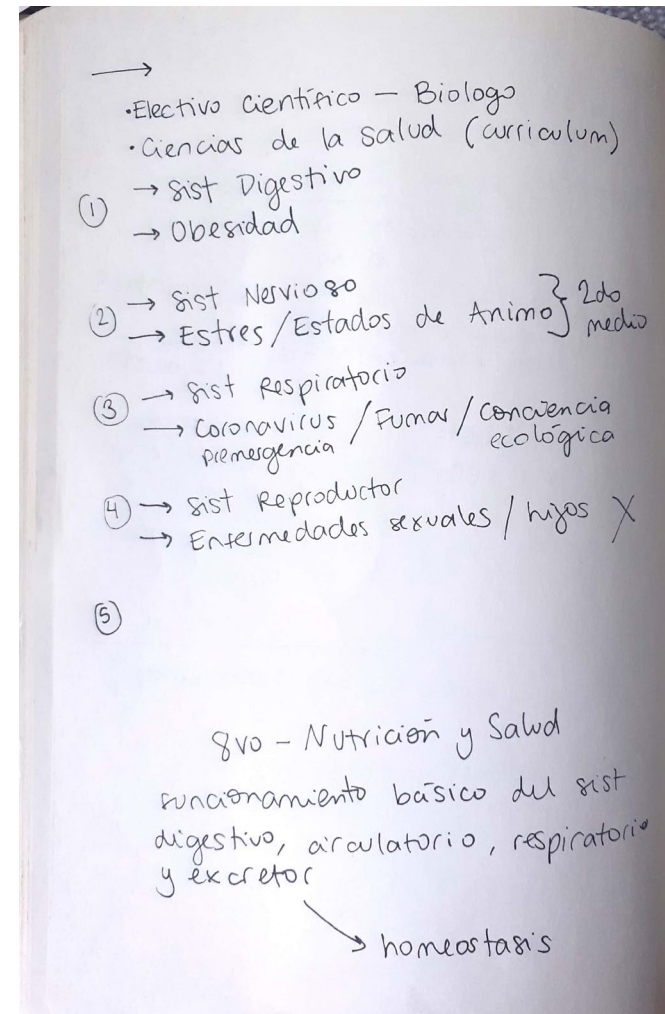 →
·Electivo científico – Biologo
·Ciencias de la salud (curriculum)
① → Sist Digestivo
→ Obesidad
② → Sist Nervioso
→ Estres/Estados de Animo } 2do medio
③ → Sist Respiratorio
→ Coronavirus / Fumar / conciencia
premergencia ecológica
④ → Sist Reproductor
→ Enfermedades sexuales / hijos X
⑤
8vo – Nutrición y Salud
funcionamiento básico del sist
digestivo, circulatorio, respiratorio
y excretor
→ homeostasis